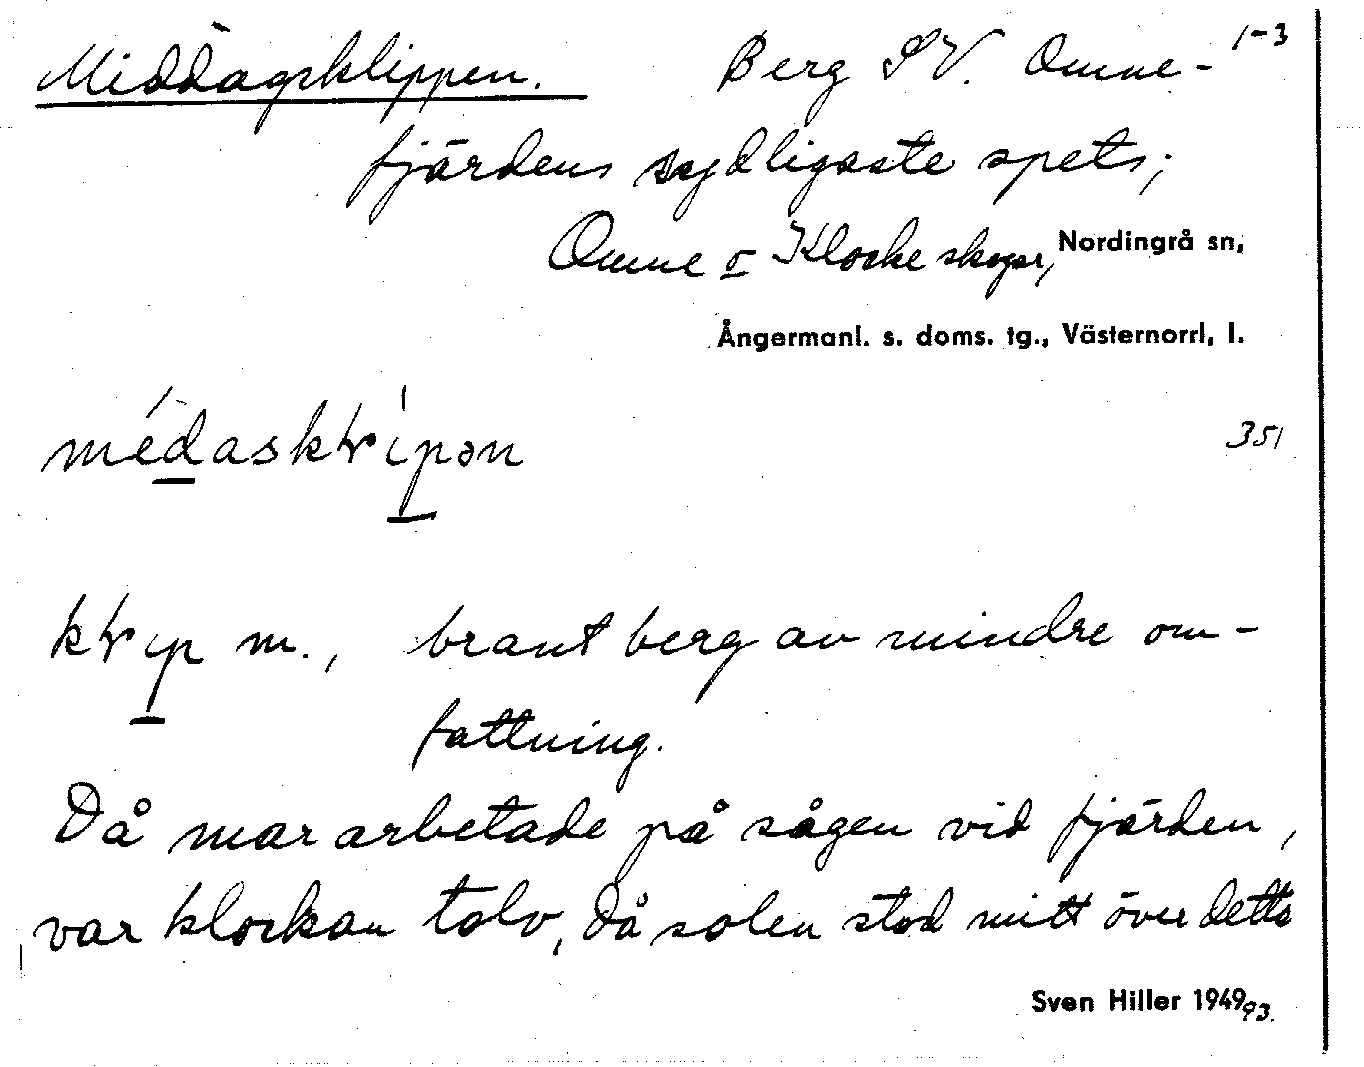 Middagsklippen. Berg SV. Omne- 1-3
fjärdens sydligaste spets;
Omne o Klocke skogar, Nordingrå sn,
Ångermanl. s. doms. tg., Västernorrl. l.
351
m., brant berg av mindre om-
fattning.
Då man arbetade på sågen vid fjärden,
var klockan tolv, då solen stod mitt över detta
Sven Hiller 1949 93.